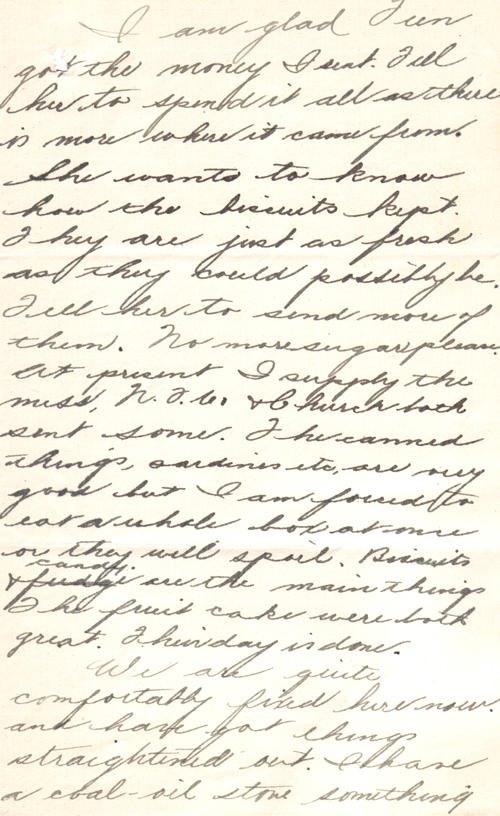 I am glad Fern
got the money I sent. Tell
her to spend it all as there
is more where it came from.
She wants to know
how the biscuits kept.
They are just as fresh
as they could possibly be.
Tell her to send more of
them. No more sugar please.
At present I supply the
mess, N. T. Co. & Church both
sent some. The canned
things, sardines etc, are very
good but I am forced to
eat a whole box at once
or they will spoil. Biscuits
candy.
& fudge are the main things
The fruit cake were both
great. Their day is done.
We are quite
comfortably fixed here now.
and have got things
straightened out. I have
a coal-oil stove something